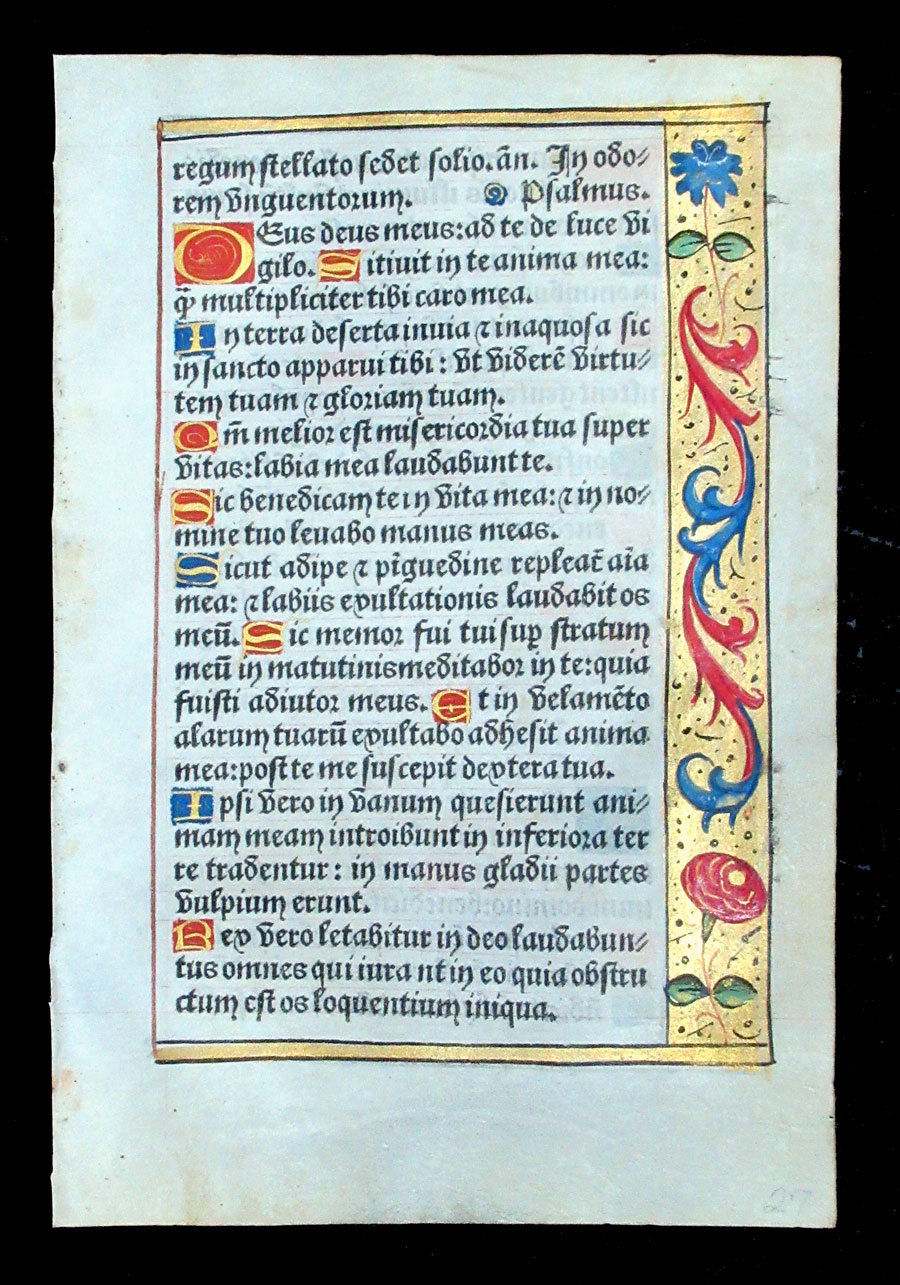 regum stellato sedet solio. añ. In odo/
rem vnguentorum. Psalmus.
DEus deus meus: ad te de luce vi
gilo. Sitiuit in te anima mea:
q̃ multipliciter tibi caro mea.
In terra deserta inuia ⁊ inaquosa sic
in sancto apparui tibi: vt viderẽ virtu/
tem tuam ⁊ gloriam tuam.
Qm̃ melior est misericordia tua super
vitas: labia mea laudabunt te.
Sic benedicam te in vita mea: ⁊ in no/
mine tuo leuabo manus meas.
Sicut adipe ⁊ pĩguedine repleat̃ aĩa
mea: ⁊ labiis exultationis laudabit os
meũ. Sic memor fui tui suꝑ stratum
meũ in matutinis meditabor in te: quia
fuisti adiutor meus. Et in velamẽto
alarum tuarũ exultabo adhesit anima
mea: post te me suscepit dextera tua.
Ipsi vero in vanum quesierunt ani/
mam meam introibunt in inferiora ter
re tradentur: in manus gladii partes
vulpium erunt.
Rex vero letabitur in deo laudabun/
tur omnes qui iurant in eo quia obstru
ctum est os loquentium iniqua.
27